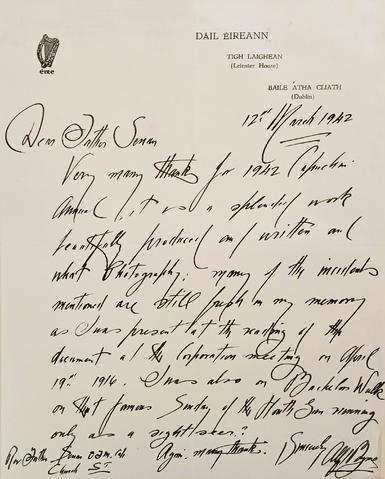 éire
DÁIL ÉIREANN
TIGH LAIGHEAN
(Leinster House)
BAILE ÁTHA CLIATH
(Dublin)
March 1942
Dear Father Senan
Very many thanks for 1942 Capuchin
Annual, it is a splendid work
beautifully produced and written and
what Photography: many of the incidents
mentioned are still fresh in my memory
as I was present at the reading of the
document at the Corporation meeting on April
19th 1916. I was also on Bachelors Walk
on that famous Sunday of the Howth Gun running
only as a sightseer.
Again many thanks. Sincerely
Rev Father Senan O.F.M. Cap
Church ST